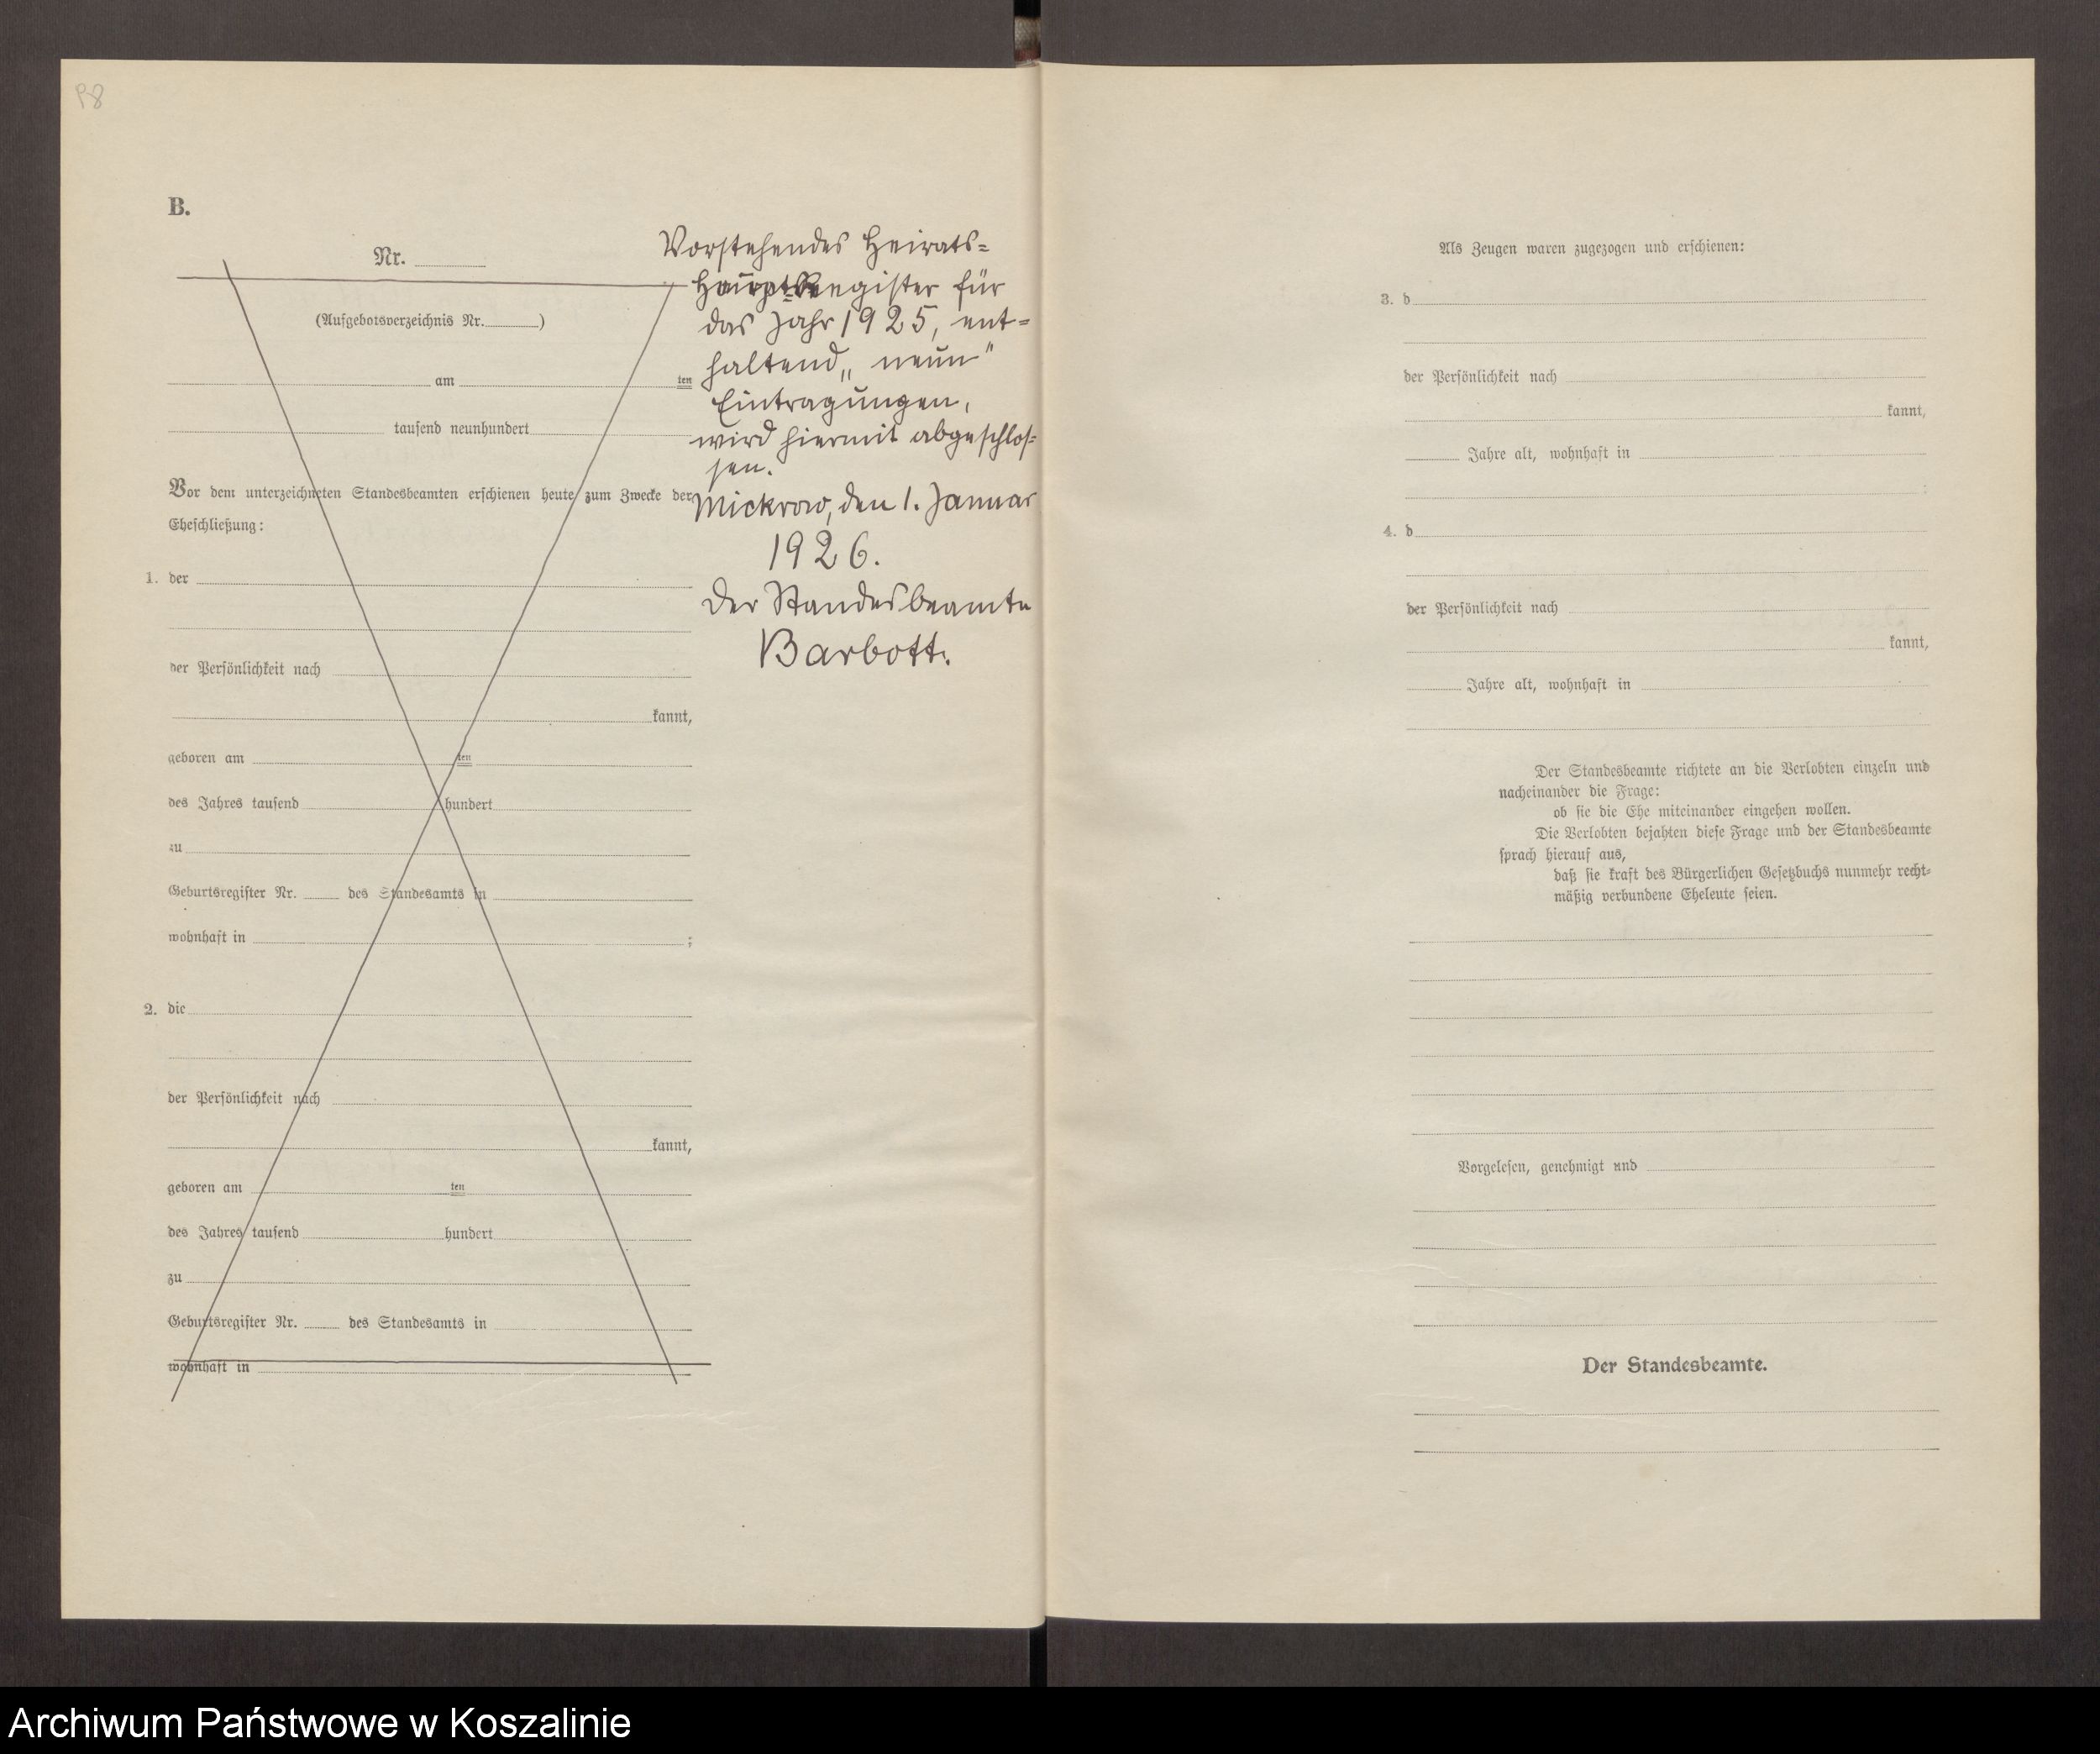 P8
B.
Nr.
(Aufgebotsverzeichnis Nr. )
am ten
tausend neunhundert
Vor dem unterzeichneten Standesbeamten erschienen heute zum Zwecke der
Eheschließung:
1. der
der Persönlichkeit nach
kannt,
geboren am ten
des Jahres tausend hundert
zu
Geburtsregister Nr. des Standesamts in
wohnhaft in ;
2. die
der Persönlichkeit nach
kannt,
geboren am ten
des Jahres tausend hundert
zu
Geburtsregister Nr. des Standesamts in
wohnhaft in
Vorstehendes Heirats-
Haupt-Register für
das Jahr 1925, ent-
haltend „neun“
Eintragungen,
wird hiermit abgeschlos-
sen.
Mickrow, den 1. Januar
1926.
Der Standesbeamte
Barbott.
Als Zeugen waren zugezogen und erschienen:
3. d
der Persönlichkeit nach
kannt,
Jahre alt, wohnhaft in
;
4. d
der Persönlichkeit nach
kannt,
Jahre alt, wohnhaft in
Der Standesbeamte richtete an die Verlobten einzeln und
nacheinander die Frage:
ob sie die Ehe miteinander eingehen wollen.
Die Verlobten bejahten diese Frage und der Standesbeamte
sprach hierauf aus,
daß sie kraft des Bürgerlichen Gesetzbuchs nunmehr recht-
mäßig verbundene Eheleute seien.
Vorgelesen, genehmigt und
Der Standesbeamte.
Archiwum Państwowe w Koszalinie